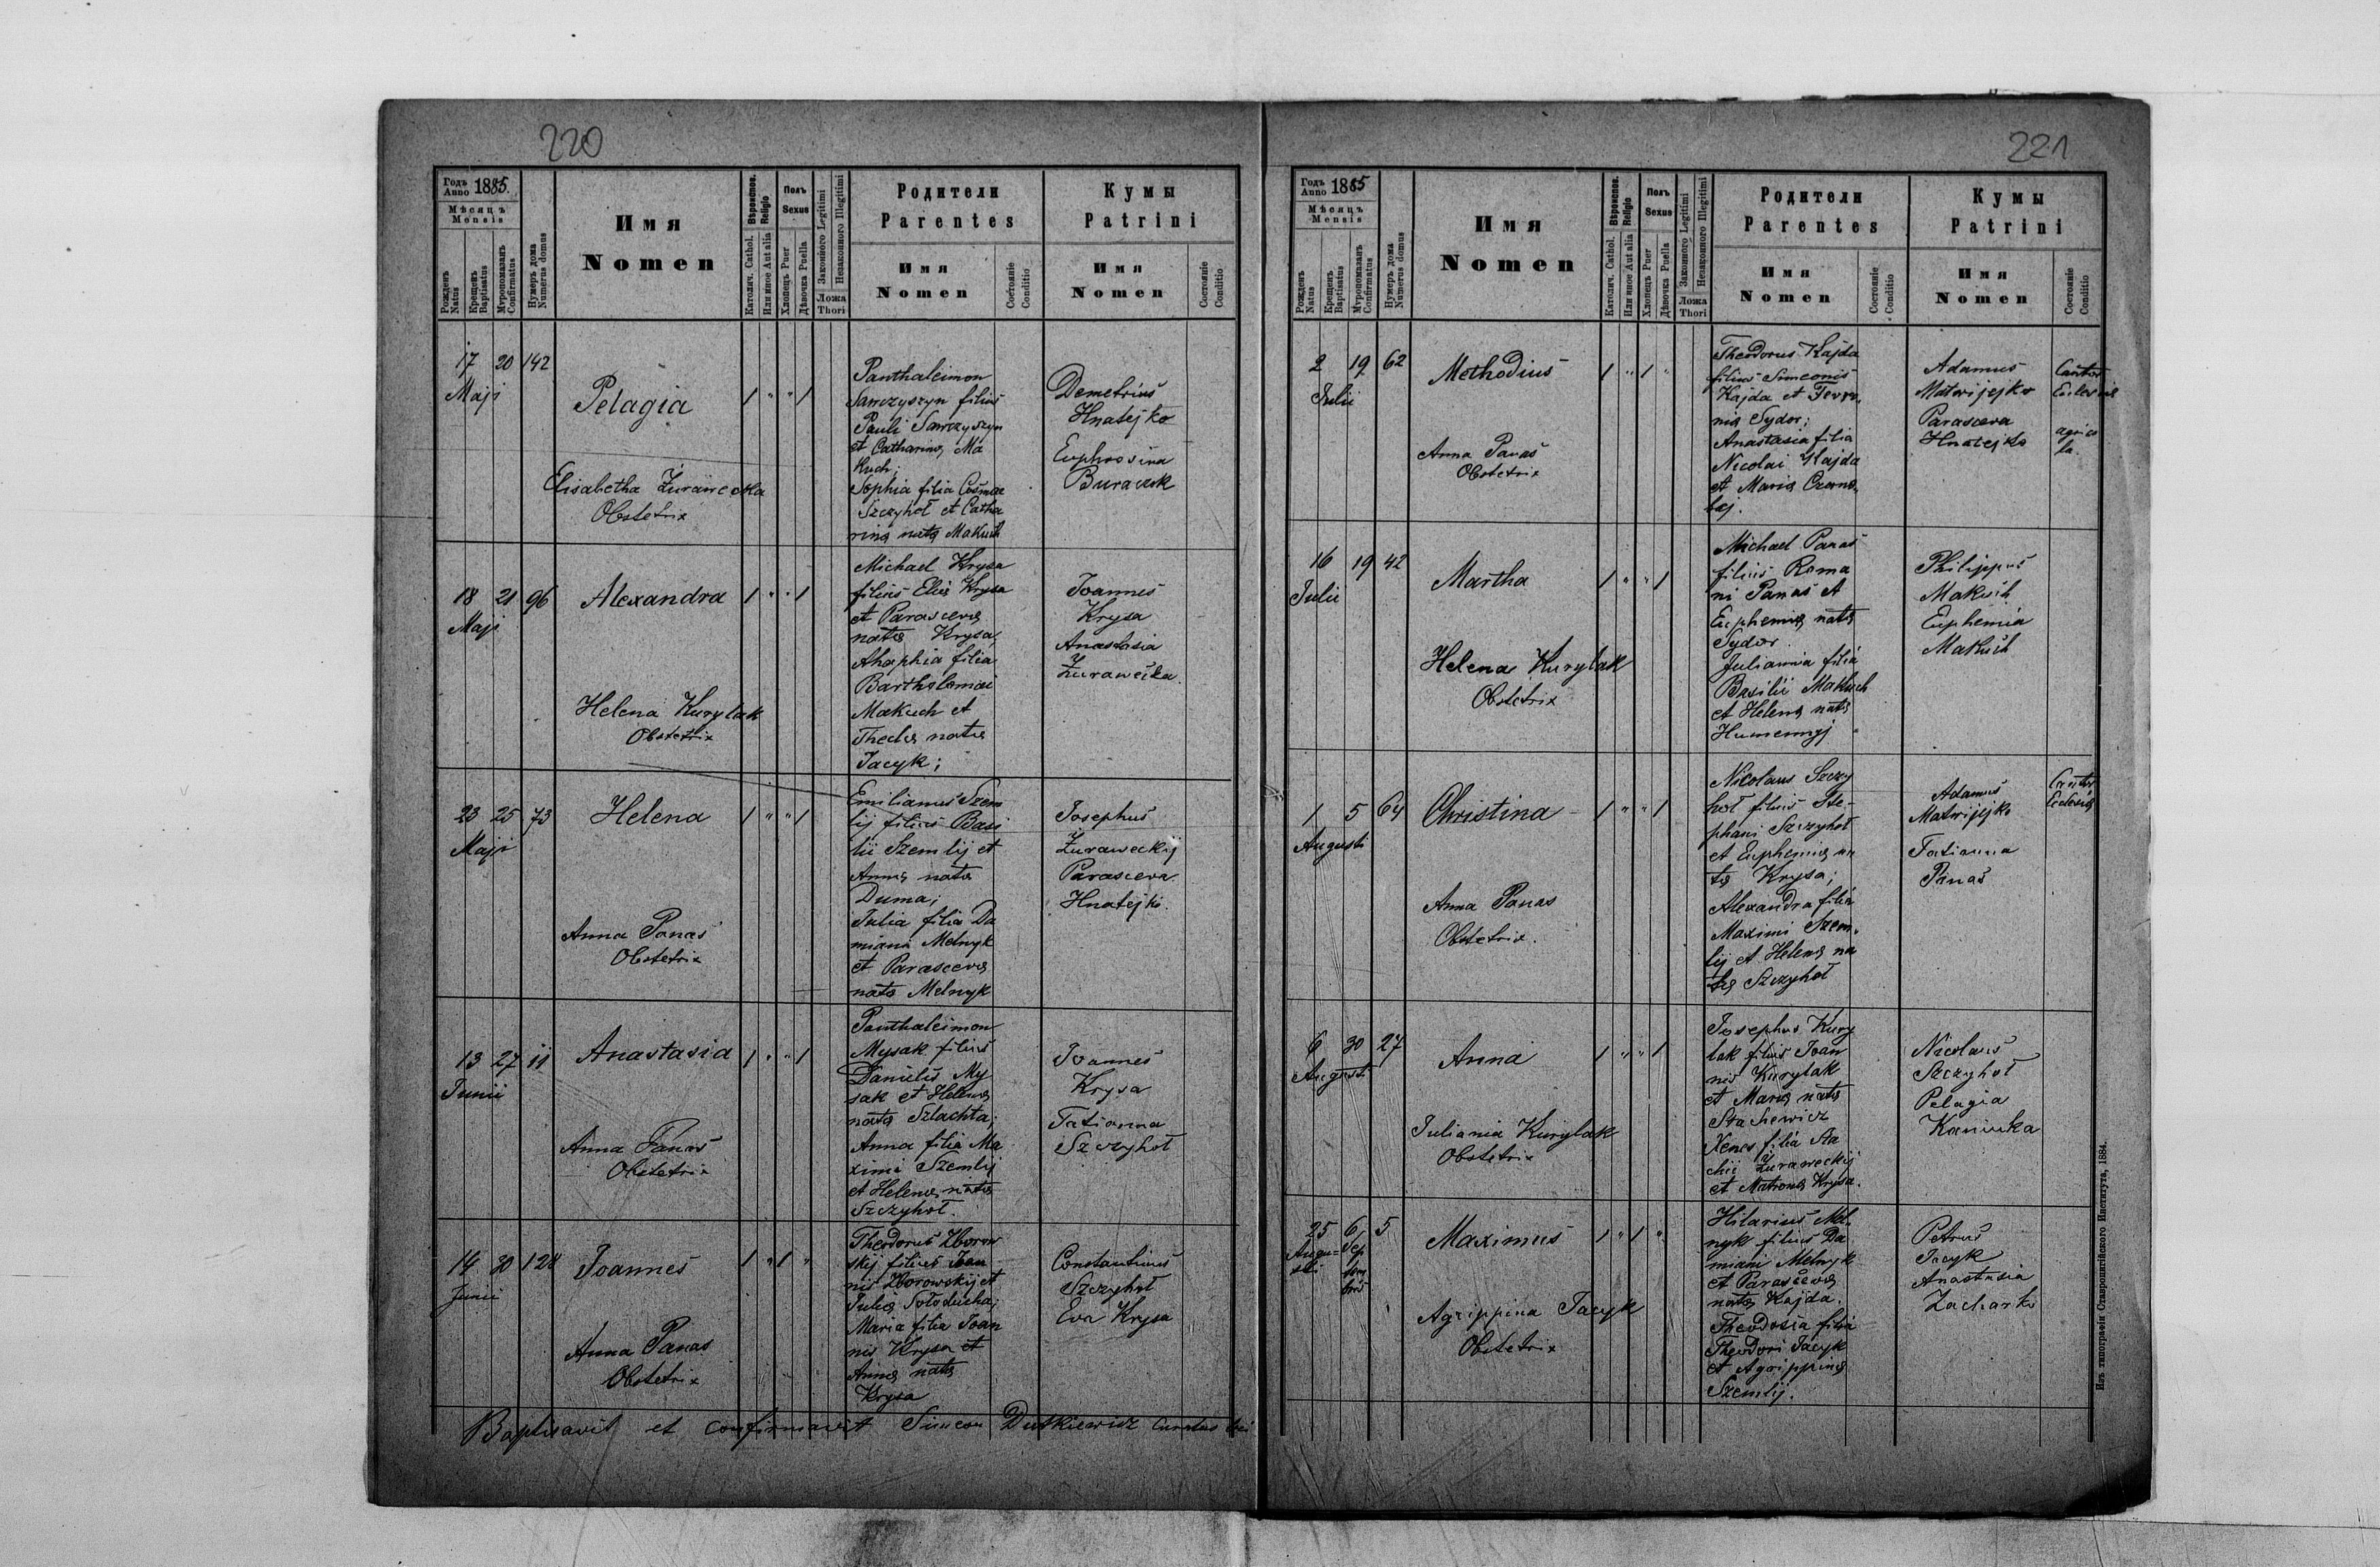 220
Годъ
Anno 1885.
Мѣсяцъ
Mensis
Рожденъ
Natus
Крещенъ
Baptisatus
Мѵропомазанъ
Confirmatus
Нумеръ дома
Numerus domus
Имя
Nomen
Вѣроиспов.
Religio
Католич. Cathol.
Или иное Aut alia
Полъ
Sexus
Хлопецъ Puer
Дѣвочка Puella
Законного Legitimi
Незаконного Illegitimi
Ложа
Thori
Родители
Parentes
Имя
Nomen
Состояніе
Conditio
Кумы
Patrini
Имя
Nomen
Состояніе
Conditio
17 20 142
Maji
Pelagia
1 " " 1
Elisabetha Żurawecka
Obstetrix
Panthaleimon
Sawczyszyn filius
Pauli Sawczyszyn
et Catharina Ma
kuch;
Sophia filia Cosmae
Szczyhoł et Catha
rina nata Makuch
Demetrius
Hnatejko
Euphrosina
Buraczok
18 21 96
Maji
Alexandra
1 " " 1
Helena Kurylak
Obstetrix
Michael Krysa
filius Elia Krysa
et Parasceva
nata Krysa;
Ahaphia filia
Bartholomai
Makuch et
Thecla nata
Jacyk;
Joannes
Krysa
Anastasia
Żurawecka.
23 25 73
Maji
Helena
1 " " 1
Anna Panas
Obstetrix
Emilianus Szem
lij filius Basi
lii Szemlij et
Anna nata
Duma;
Julia filia Da
miani Melnyk
et Parasceva
nata Melnyk
Josephus
Żuraweckij
Parasceva
Hnatejko.
13 27 11
Junii
Anastasia
1 " " 1
Anna Panas
Obstetrix
Panthaleimon
Mysak filius
Danielis My
sak et Helena
nata Szlachta;
Anna filia Ma
ximi Szemlij
et Helena nata
Szczyhoł.
Joannes
Krysa
Tatianna
Szczyhoł
14 30 128
Junii
Joannes
1 " 1 "
Anna Panas
Obstetrix
Theodorus Zborow
skij filius Joan
nis Zborowskij et
Julia Sołoducha;
Maria filia Joan
nis Krysa et
Anna nata
Krysa
Constantinus
Szczyhoł
Eva Krysa
Baptisavit et confirmavit Simeon Dutkiewicz Curatus loci
221
Годъ
Anno 1885
Мѣсяцъ
Mensis
Рожденъ
Natus
Крещенъ
Baptisatus
Мѵропомазанъ
Confirmatus
Нумеръ дома
Numerus domus
Имя
Nomen
Вѣроиспов.
Religio
Католич. Cathol.
Или иное Aut alia
Полъ
Sexus
Хлопецъ Puer
Дѣвочка Puella
Законного Legitimi
Незаконного Illegitimi
Ложа
Thori
Родители
Parentes
Имя
Nomen
Состояніе
Conditio
Кумы
Patrini
Имя
Nomen
Состояніе
Conditio
2 19 62
Julii
Methodius
1 " 1 "
Anna Panas
Obstetrix
Theodorus Kajda
filius Simeonis
Kajda et Fevro
nia Sydor;
Anastasia filia
Nicolai Kajda
et Maria Czorno
baj.
Adamus
Matwijejko
Parasceva
Hnatejko
Cantor
Eclesiae
agrico
la.
16 19 42
Julii
Martha
1 " " 1
Helena Kurylak
Obstetrix
Michael Panas
filius Roma
ni Panas et
Euphemia nata
Sydor.
Julianna filia
Basilii Makuch
et Helena nata
Humennyj
Philippus
Makuch
Euphemia
Makuch
1 5 64
Augusti
Christina
1 " " 1
Anna Panas
Obstetrix.
Nicolaus Szczy
hoł filius Ste-
phani Szczyhoł
et Euphemia na
ta Krysa;
Alexandra filia
Maximi Szem-
lij et Helena na
ta Szczyhoł
Adamus
Matwijejko
Tatianna
Panas
Cantor
Eclesia
6 30 27
Augusti
Anna
1 " " 1
Juliania Kurylak
Obstetrix
Josephus Kury
lak filius Joan
nis Kurylak
et Maria nata
Stachewicz
Xenia filia
Żuraweckij
et Matrona Krysa.
Nicolaus
Szczyhoł
Pelagia
Kaniuka
25 6 5
Augu-
sti
Sep
tem
bris
Maximus
1 " 1 "
Agrippina Jacyk
Obstetrix
Hilarius Mel
nyk filius Da
miani Melnyk
et Parasceva
nata Kajda.
Theodosia filia
Theodori Jacyk
et Agrippina
Szemlij.
Petrus
Jacyk
Anastasia
Zacharko
Изъ типографіи Ставропигійского Института, 1884.